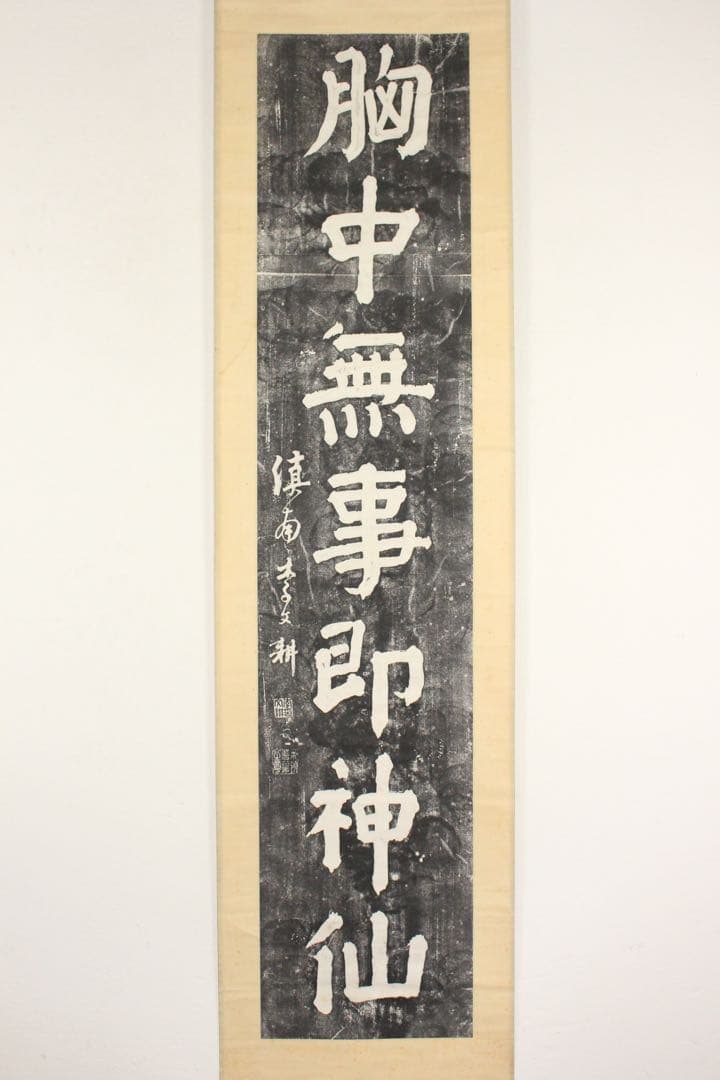 胸中無事即神仙
滇南李文耕